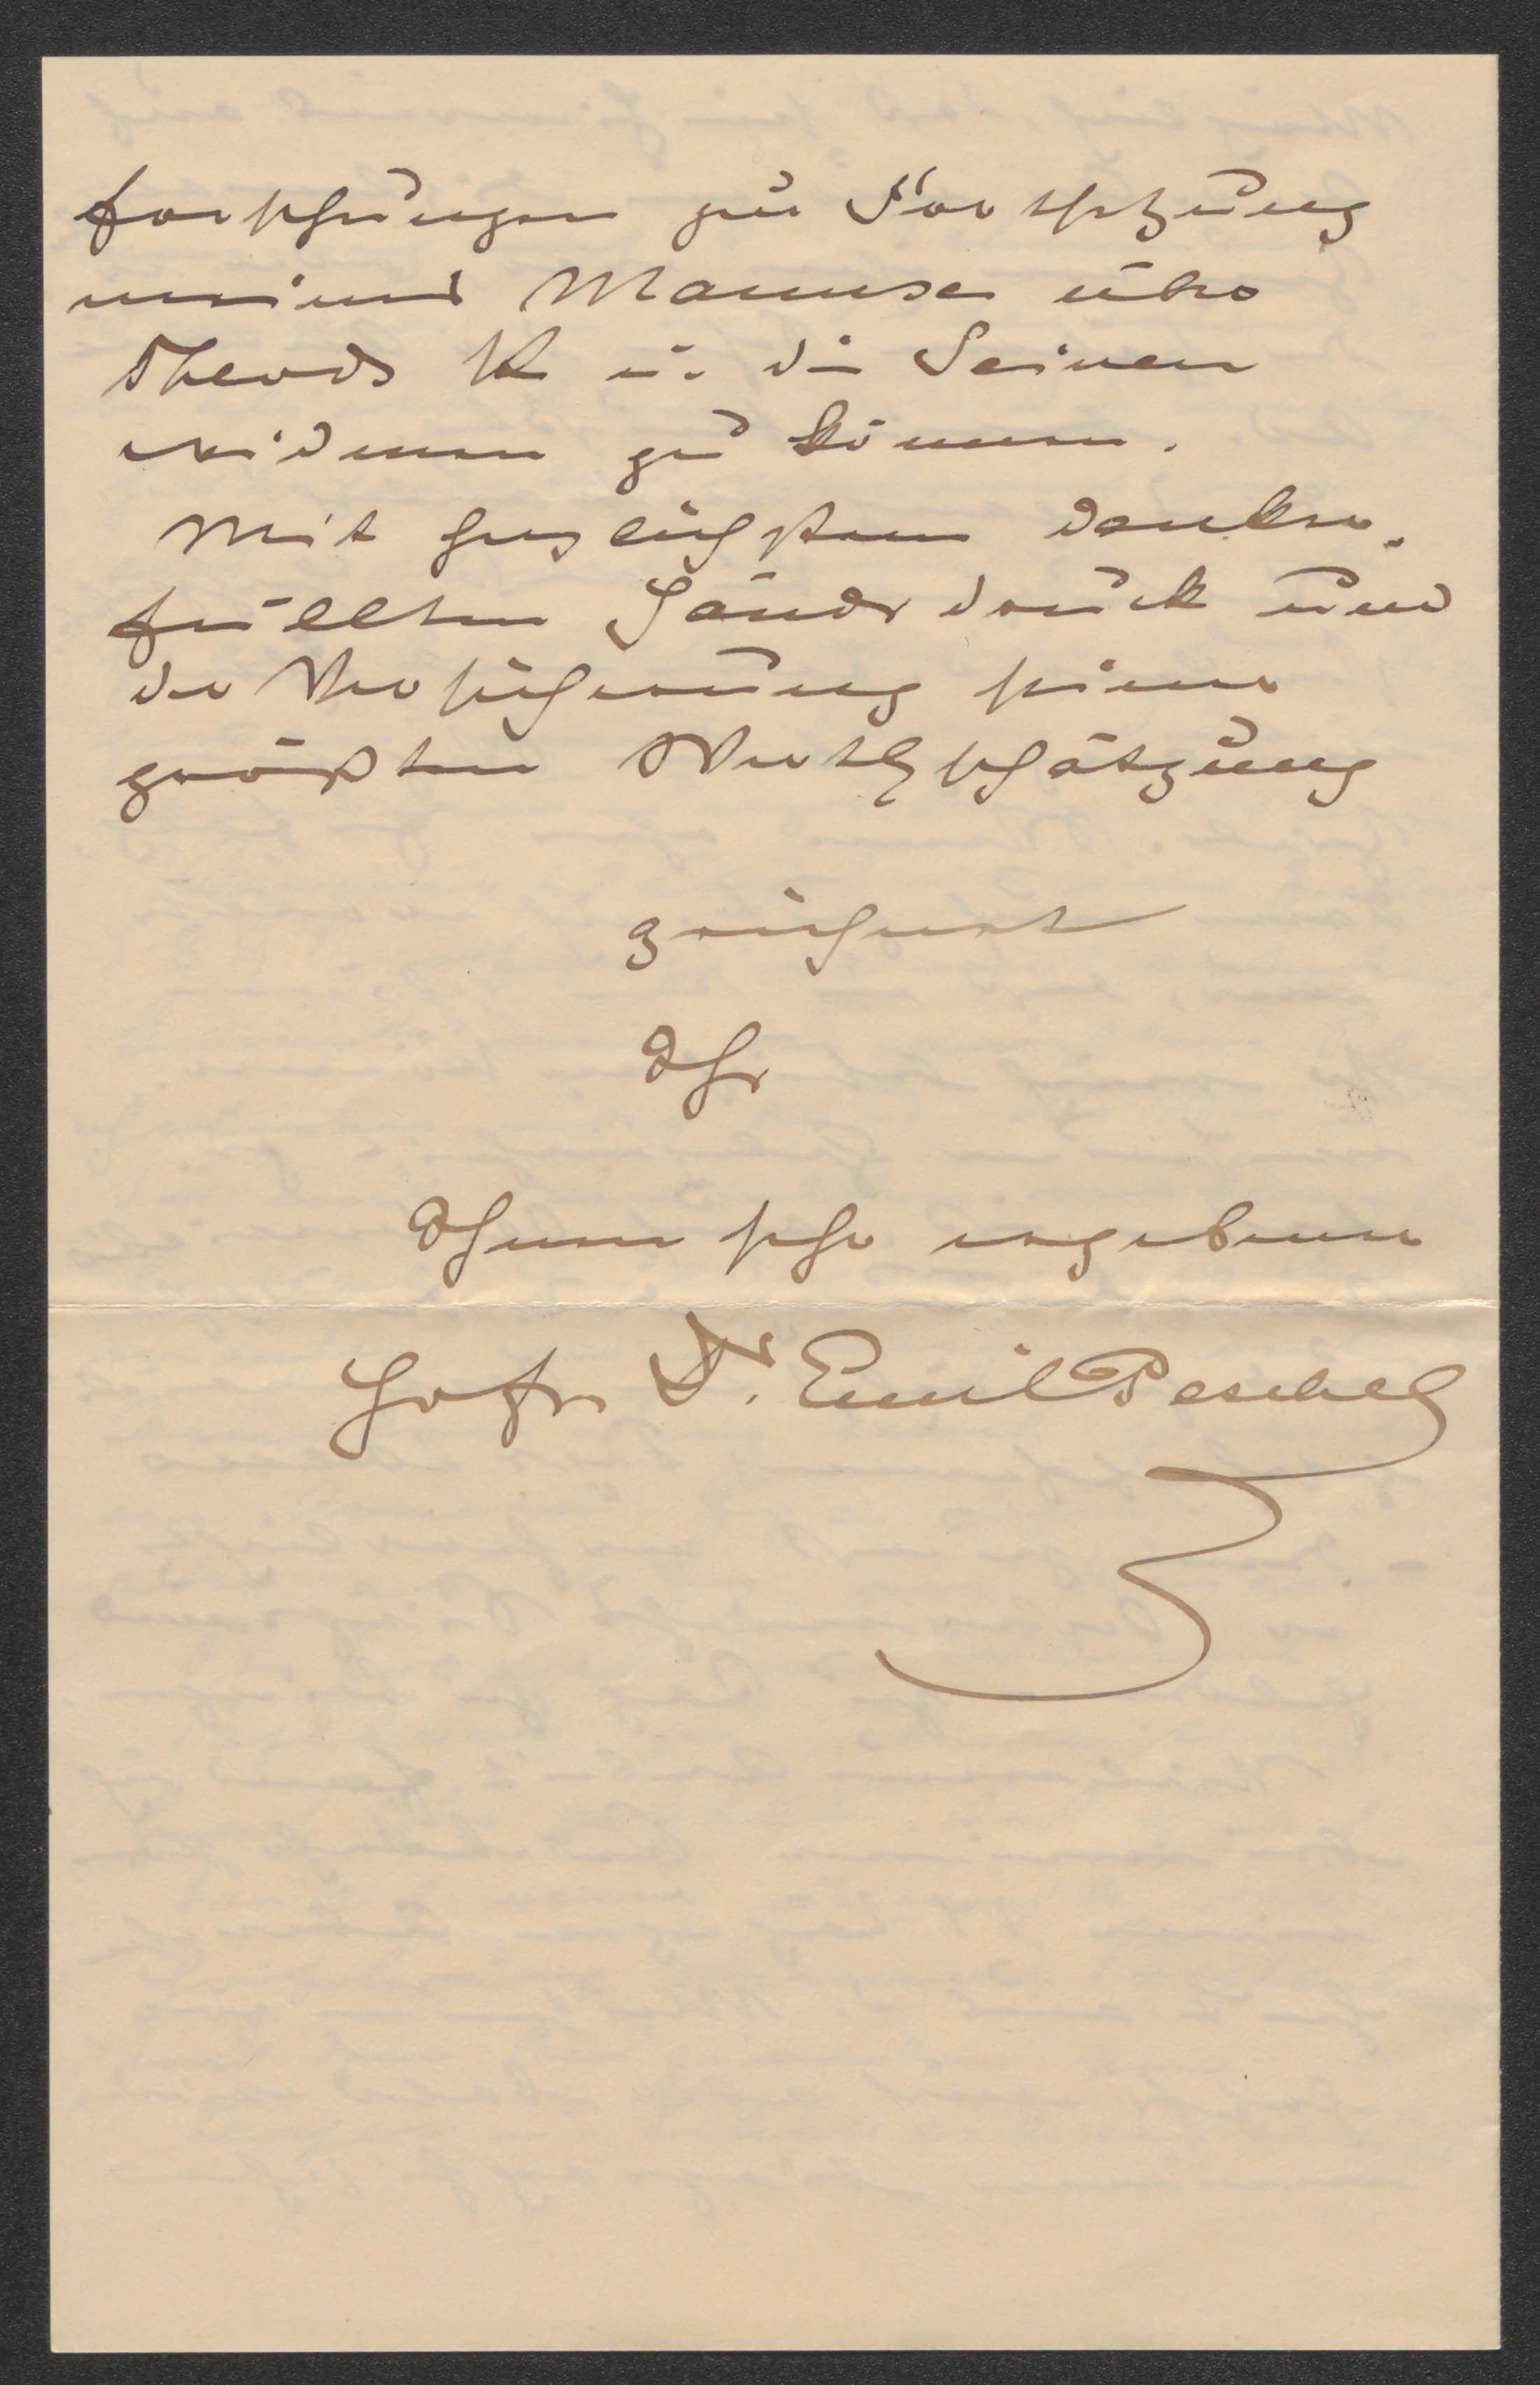 forschungen zur Fortsetzung
meines Manuscr über
Theod. K u. die Seinen
widmen zu können.
Mit herzlichstem danker-
füllten Händedruck und
der Versicherung seiner
größten Werthschätzung
zeichnet
Ihr
Ihnen sehr ergebener
Hofr. Dr. Emil Peschel